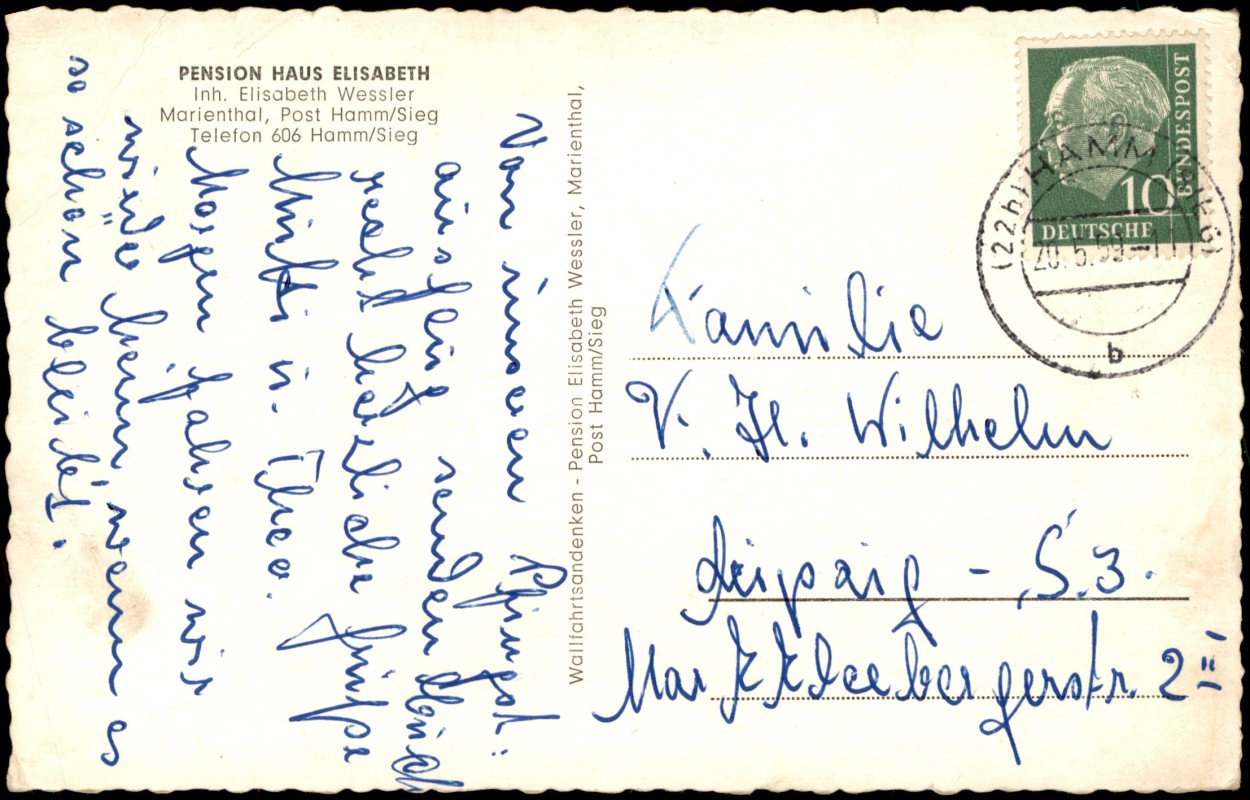 PENSION HAUS ELISABETH
Inh. Elisabeth Wessler
Marienthal, Post Hamm/Sieg
Telefon 606 Hamm/Sieg
Von unserem Pfingst=
ausflug senden Euch
recht herzliche Grüße
u. Theo.
Morgen fahren wir
wieder heim, wenn es
so schön bleibt.
Wallfahrtsandenken - Pension Elisabeth Wessler, Marienthal,
Post Hamm/Sieg
BUNDESPOST
10
DEUTSCHE
(22b) HAMM (SIEG)
20.5.59
b
Familie
V. H. Wilhelm
Leipzig - S.3.
Markkleebergerstr. 2 II